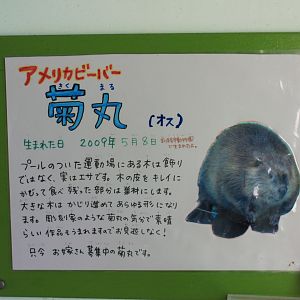 アメリカビーバー
きく まる
菊丸 (オス)
生まれた日 2009年 5月8日
プールのついた運動場にある木は飾り
ではなく、実はエサです。木の皮をキレイに
かじって食べ残った部分は巣材にします。
大きな木は かじり進めて あらゆる形になり
ます。彫刻家のような菊丸の気分で素晴
らしい作品もうまれますのでお見逃しなく！
只今 お嫁さん募集中の菊丸です。